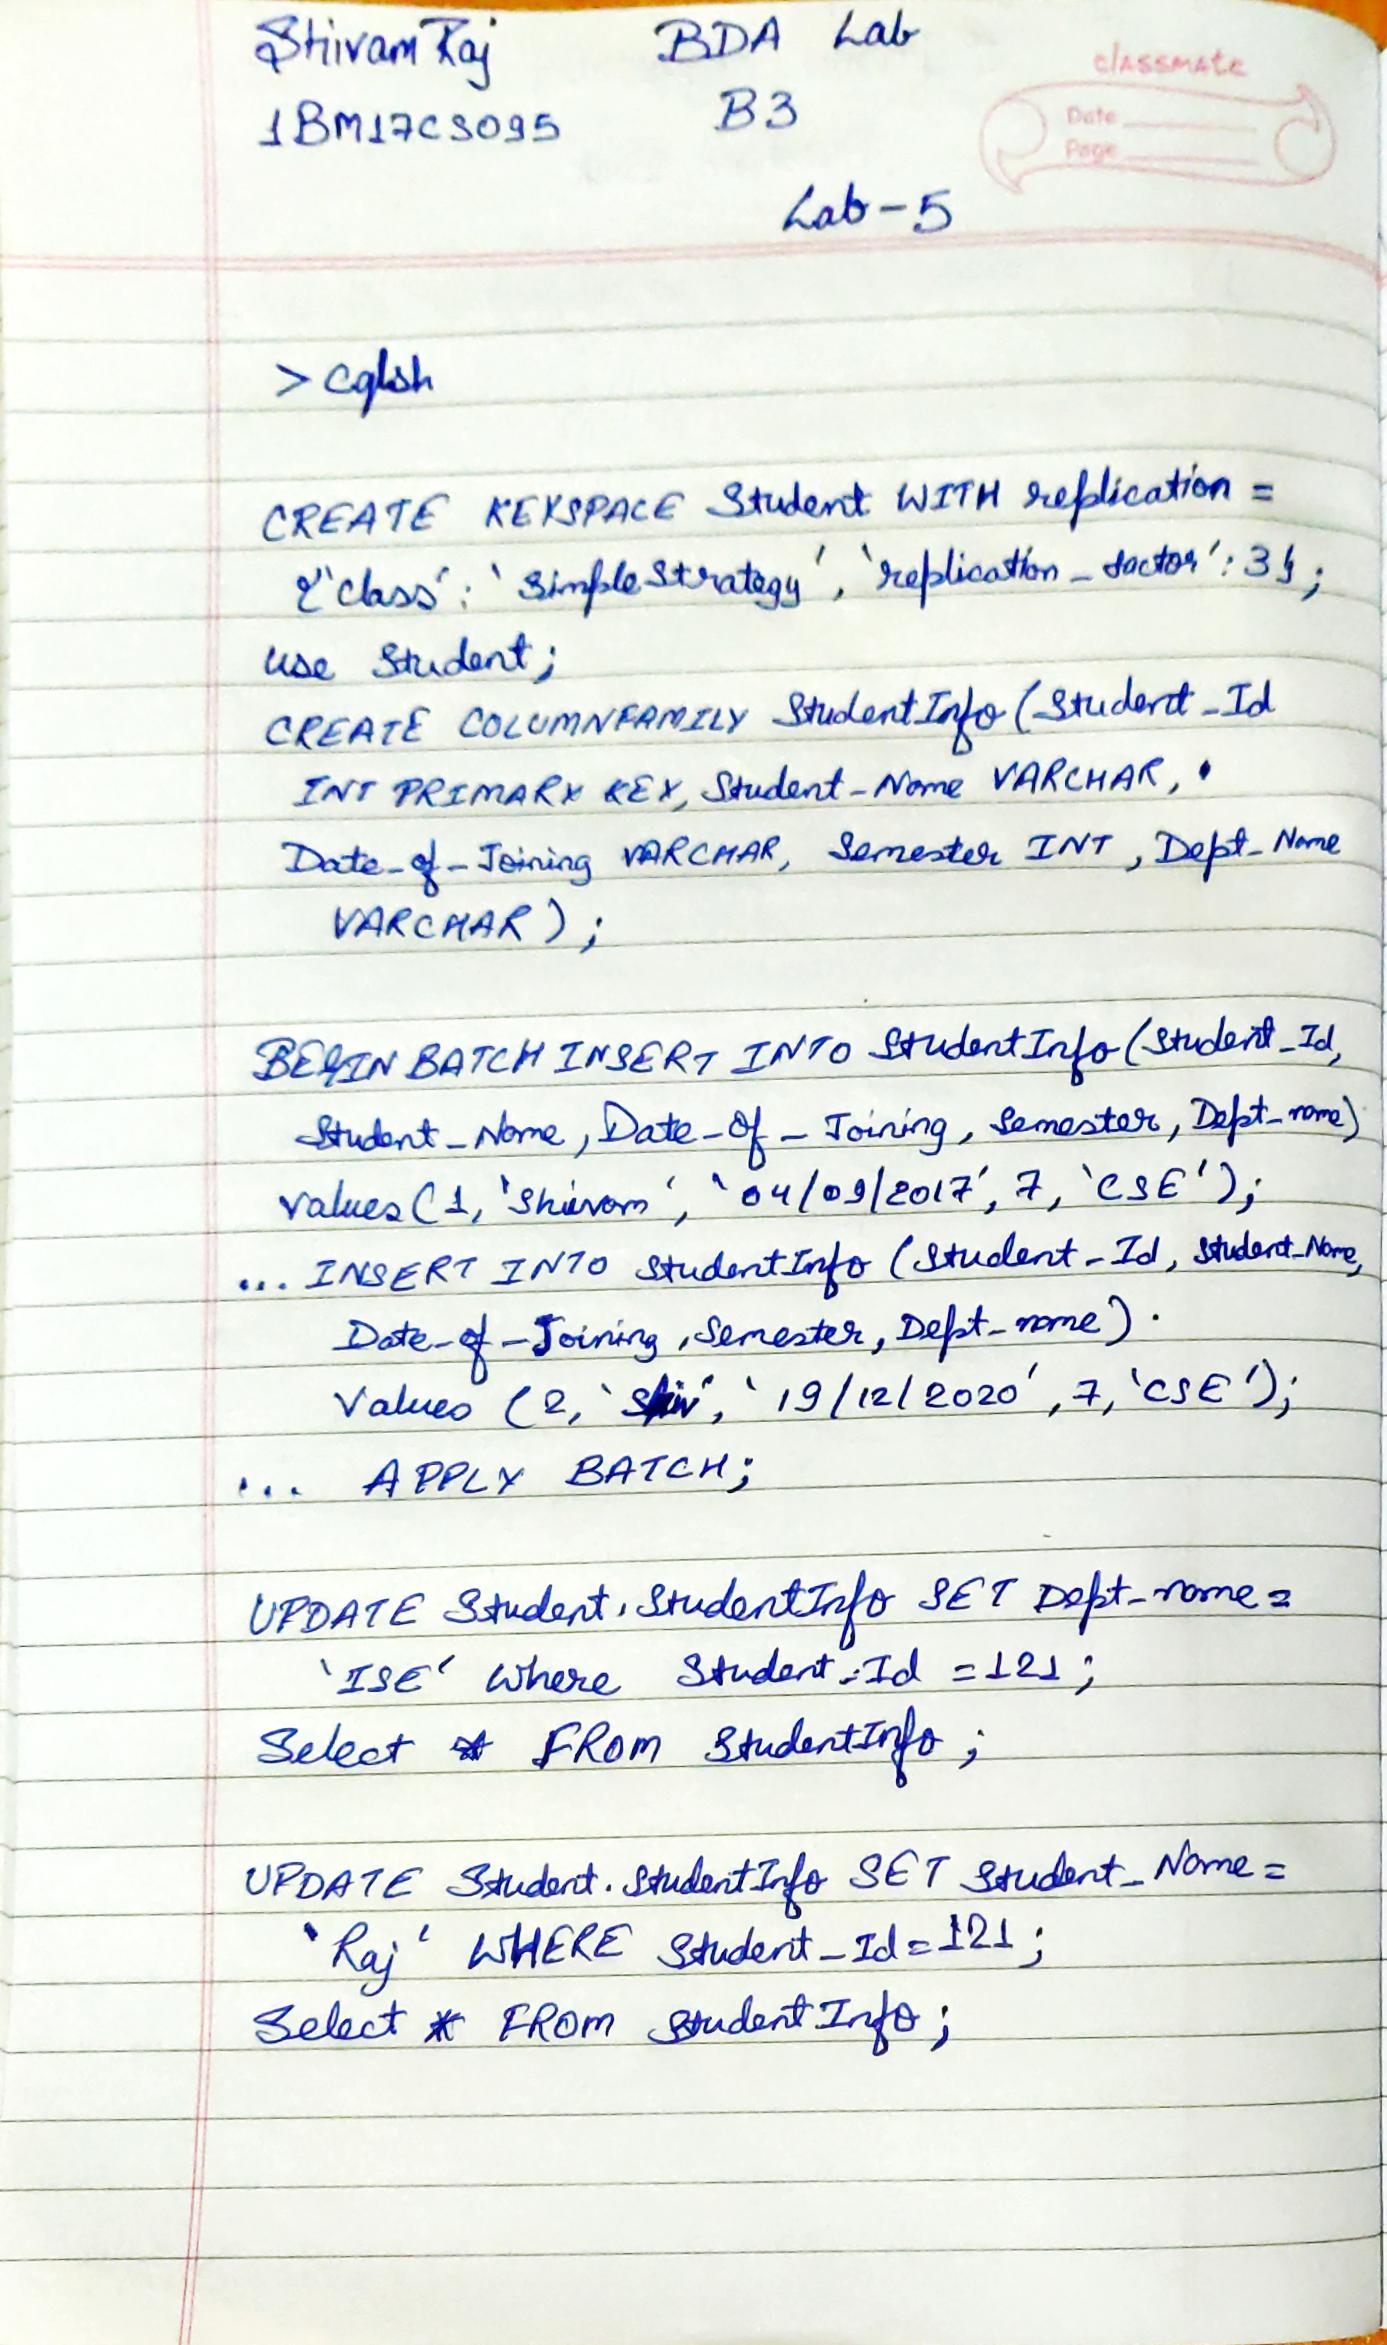 Shivam Raj BDA Lab
classmate
1BM17CS095 B3
Date
Page
Lab-5
> cqlsh
CREATE KEYSPACE Student WITH replication =
{'class': 'SimpleStrategy', 'replication_factor': 3};
use Student;
CREATE COLUMNFAMILY StudentInfo (Student_Id
INT PRIMARY KEY, Student_Name VARCHAR,
Date_of_Joining VARCHAR, Semester INT, Dept_Name
VARCHAR);
BEGIN BATCH INSERT INTO StudentInfo (Student_Id,
Student_Name, Date_of_Joining, Semester, Dept_name)
values (1, 'Shivam', '04/09/2017', 7, 'CSE');
... INSERT INTO StudentInfo (Student_Id, Student_Name,
Date_of_Joining, Semester, Dept_name)
Values (2, 'Shiv', '19/12/2020', 7, 'CSE');
... APPLY BATCH;
UPDATE Student.StudentInfo SET Dept_name =
'ISE' Where Student_Id = 121;
Select * FROM StudentInfo;
UPDATE Student.StudentInfo SET Student_Name =
'Raj' WHERE Student_Id = 121;
Select * FROM StudentInfo;